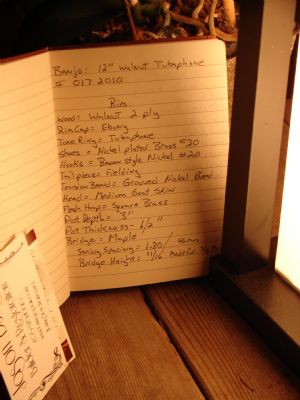 Banjo: 12" Walnut Tubaphone
# 017 2010
Rim
Wood = Walnut 2 ply
Rim Cap = Ebony
Tone Ring = Tubaphone
Shoes = Nickel plated Brass #20
Hooks = Brown style Nickel #20
Tailpiece = Fielding
Tension Band = Grooved Nickel Band
Head = Medium Goat Skin
Flesh Hoop = Square Brass
Pot Depth = 3"
Pot Thickness - 1/2"
Bridge = Maple
String Spacing = 1.80 / 46mm
Bridge Height = 11/16
Builder &